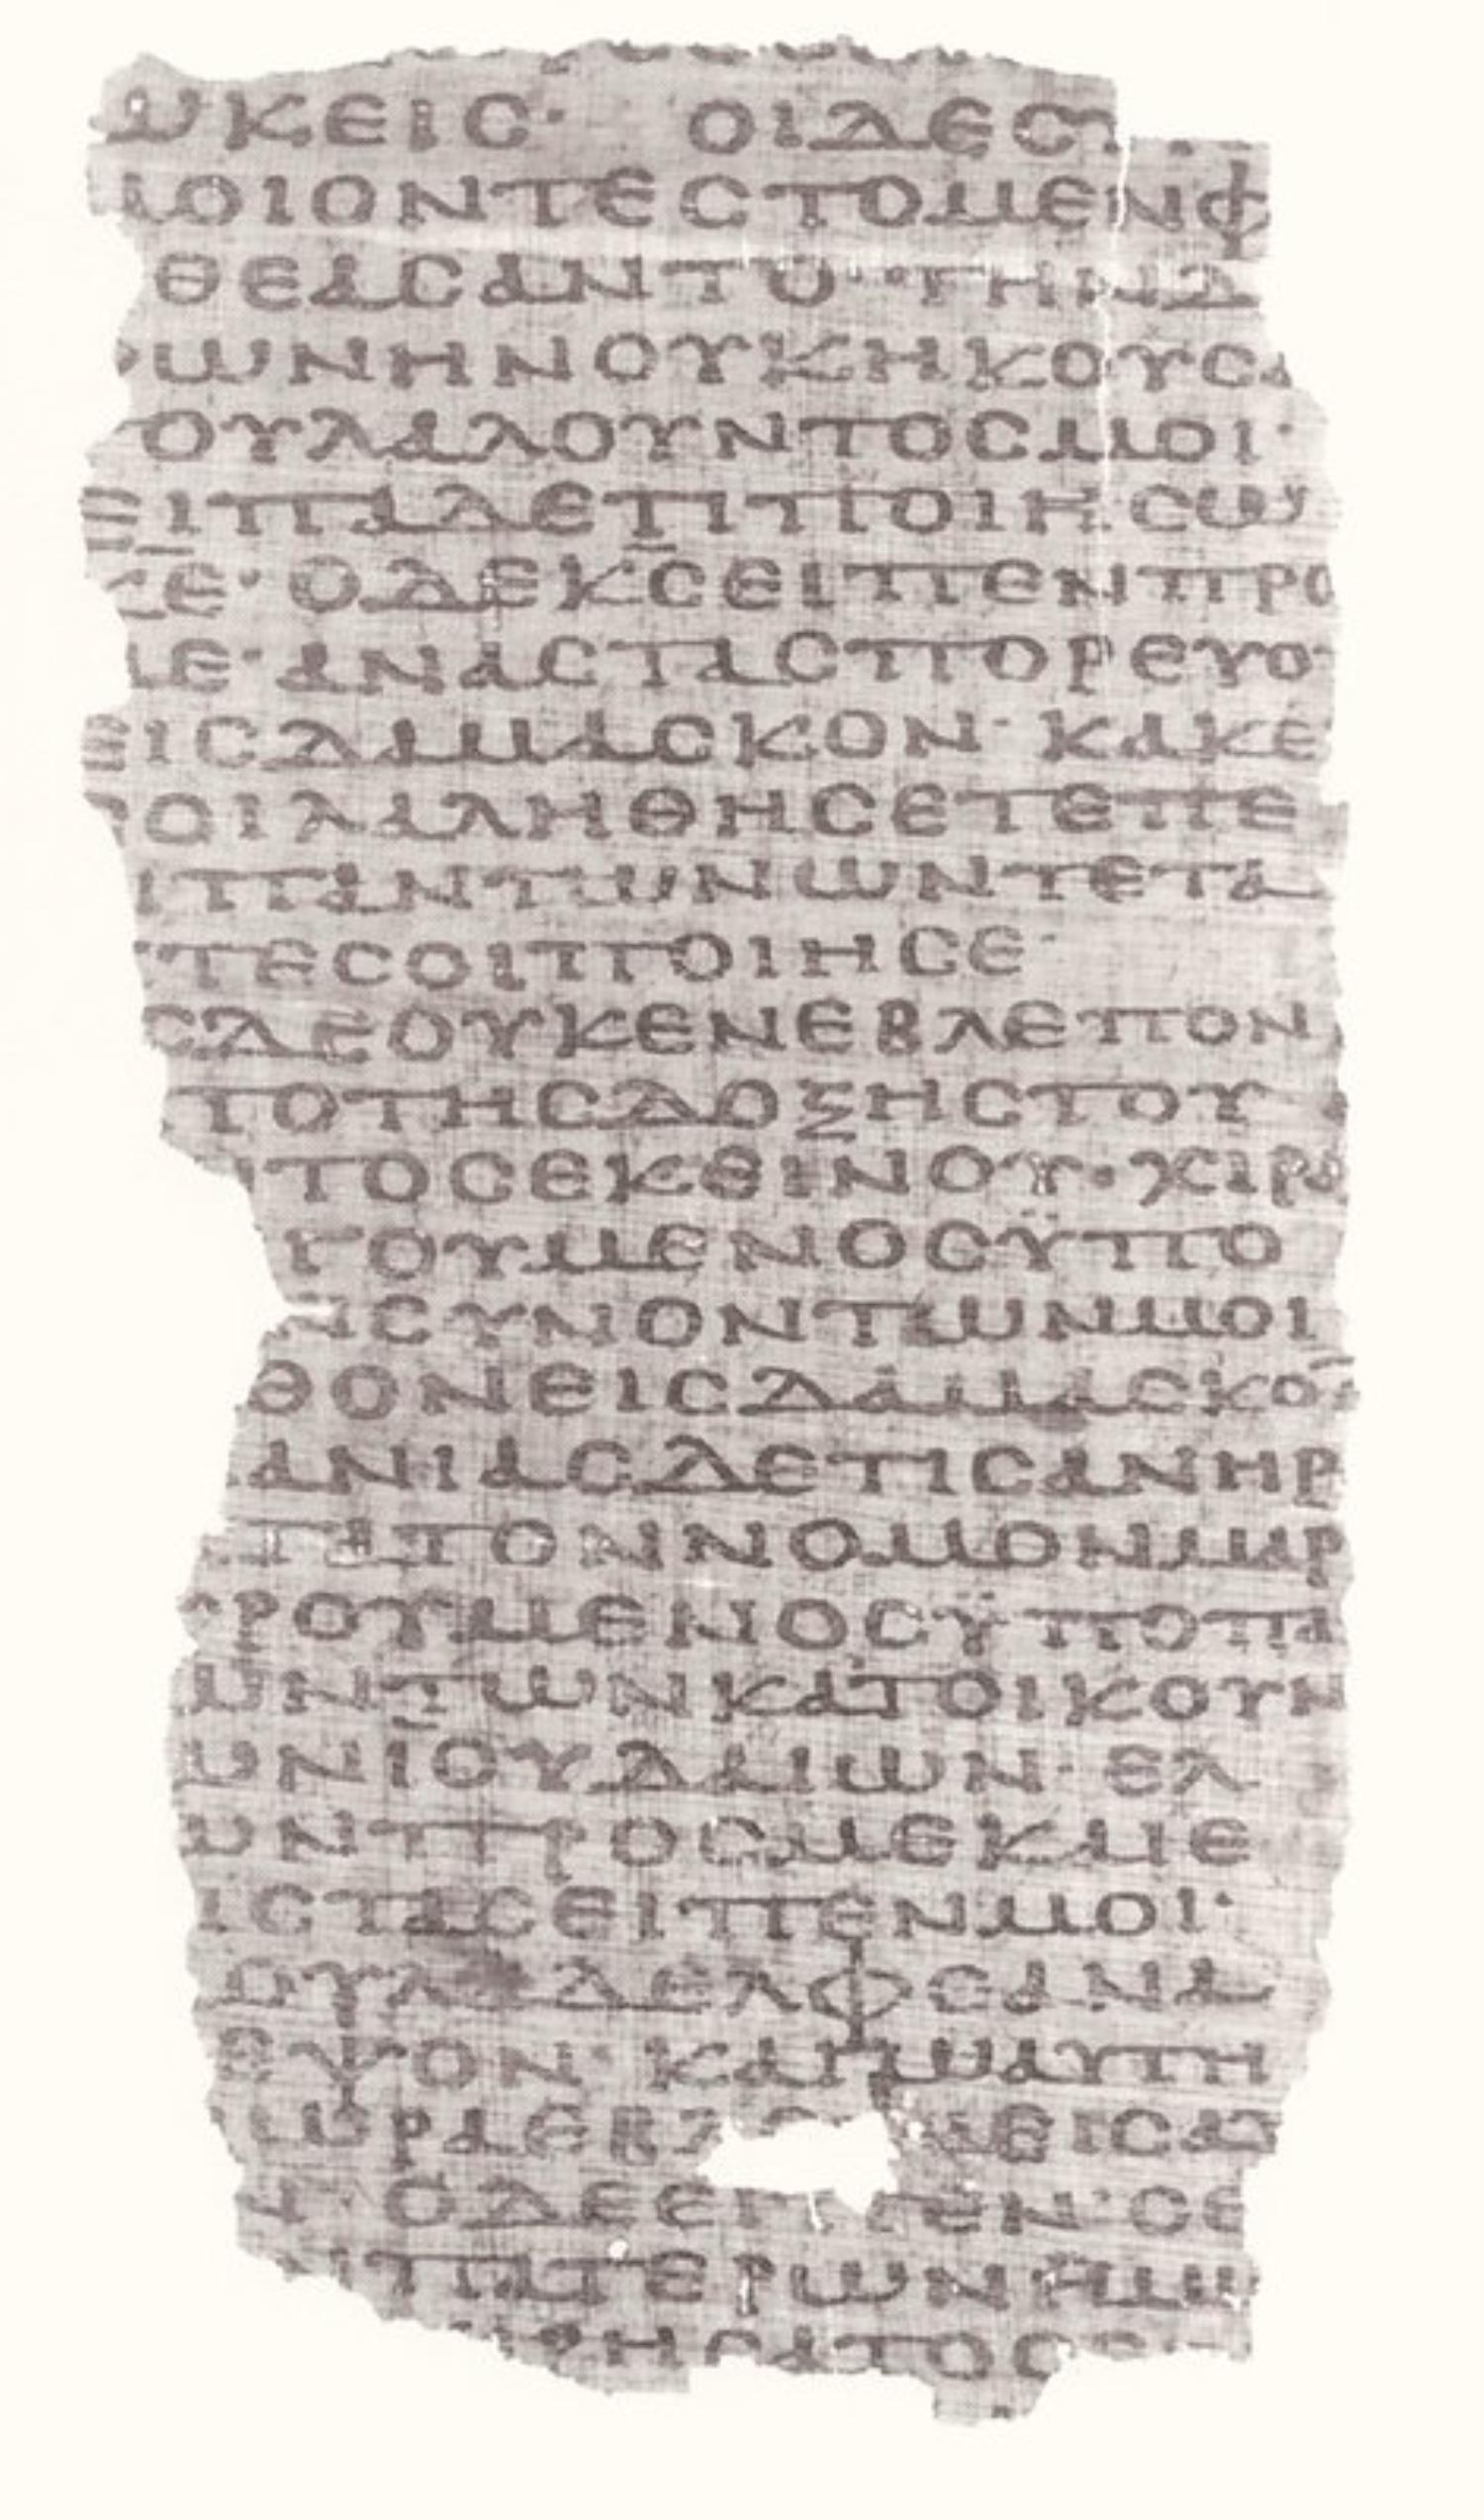 ωκεις· οι δε συ
μοι οντες το μεν φ
θεασαντο· την δ
φωνην ουκ ηκουσα
του λαλουντος μοι·
ειπα δε τι ποιησω
κ̅ε̅· ο δε κ̅ς̅ ειπεν προ
με· αναστας πορευου
εις δαμασκον· κακε
σοι λαληθησετε πε
ι παντων ων τετα
τε σοι ποιησε·
ς δε ουκ ενεβλεπον
το της δοξης του
τος εκεινου· χιρα
γουμενος ϋπο
ν συνοντων μοι
θον εις δαμασκον
ανιας δε τις ανηρ
τα τον νομον μαρ
τρουμενος ϋπο πα
ων των κατοικουν
ων ϊουδαιων· ελ
ων προς με και ε
ιστας ειπεν μοι·
ουλ αδελφε ανα
εψον· καγω αυτη
ωρα εβλ εις αυ
ο δε ειπεν· ο θε
πατερων ημω
ρισατο σε